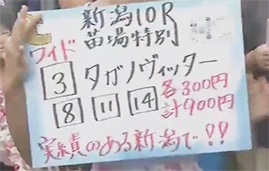 新潟10R
苗場特別
ワイド
3 タガノヴィッター
8 11 14 各300円
計900円
実績のある新潟で!!